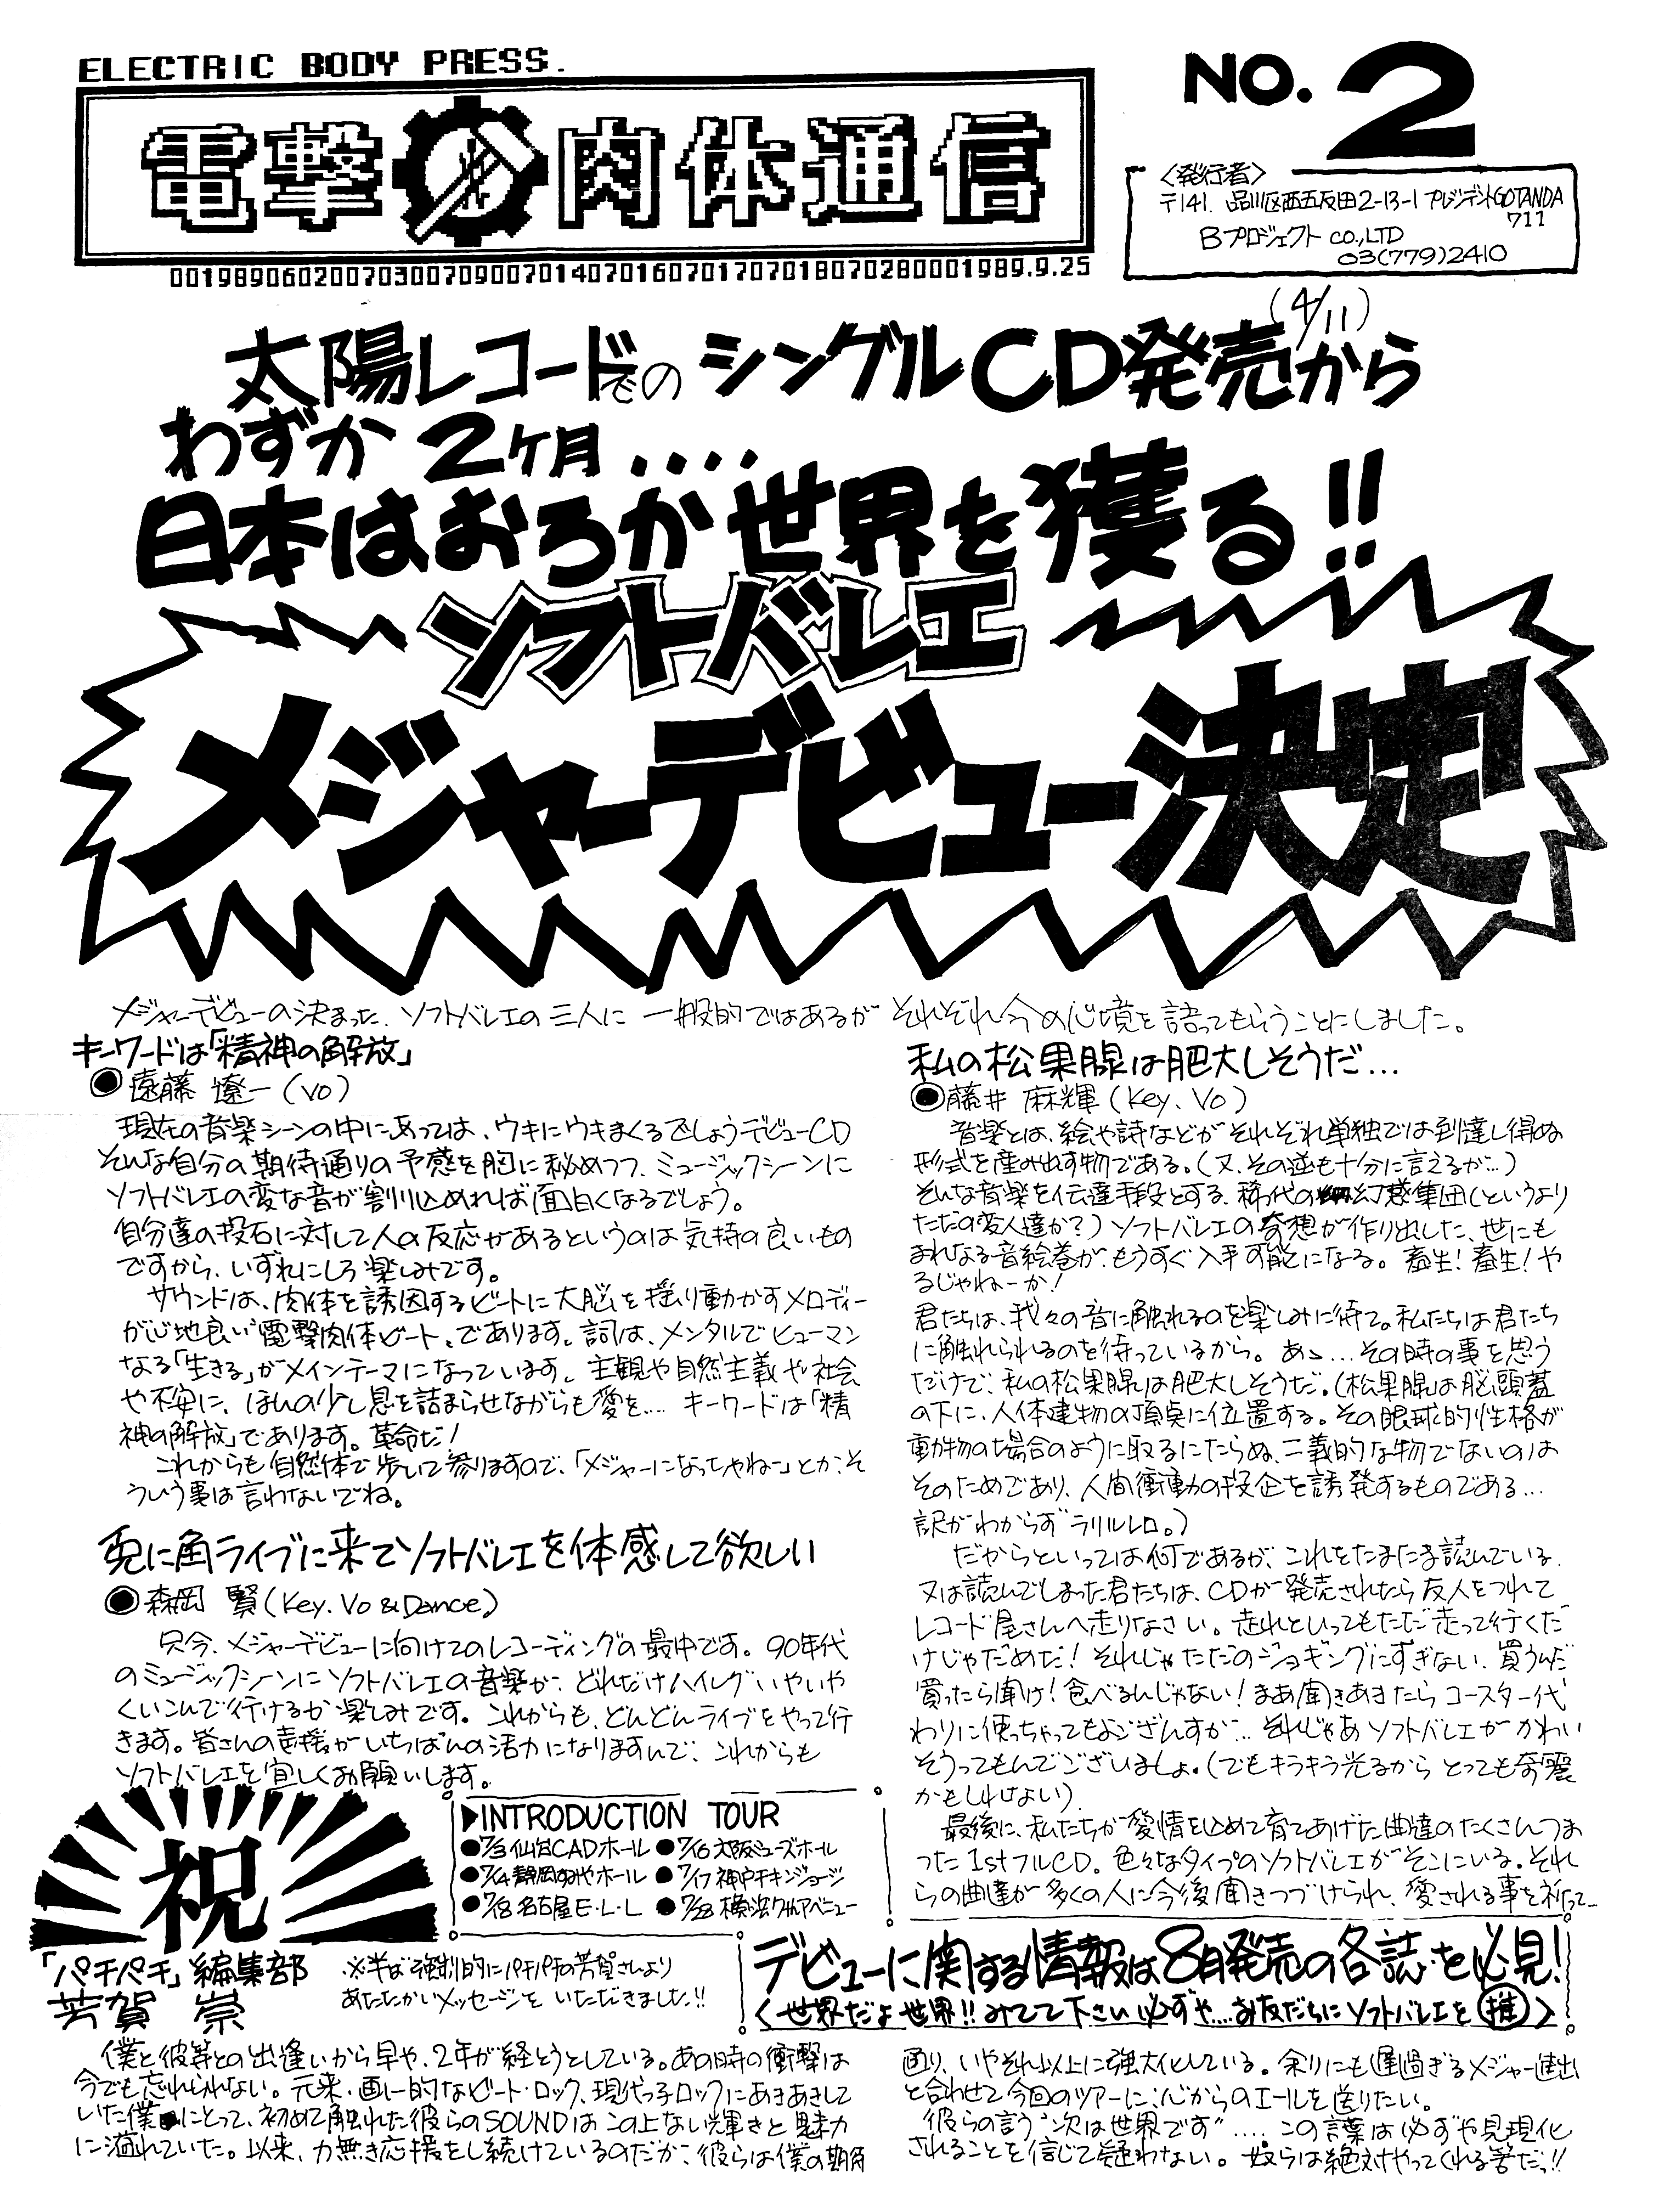 ELECTRIC BODY PRESS.
電撃肉体通信
00198906020070300709007014070160701707018070280001989.9.25
NO.2
〈発行者〉
〒141. 品川区西五反田2-13-1 プレジデントGOTANDA
711
Bプロジェクト CO.,LTD
03(779)2410
(4/11)
太陽レコードでのシングルCD発売から
わずか2ヶ月....
日本はおろか世界を獲る!!
ソフトバレエ
メジャーデビュー決定
メジャーデビューの決まった、ソフトバレエの三人に 一般的ではあるが それぞれ今の心境を語ってもらうことにしました。
キーワードは「精神の解放」
●遠藤 遼一(Vo)
現在の音楽シーンの中にあっては、ウキにウキまくるでしょうデビューCD
そんな自分の期待通りの予感を胸に秘めつつ、ミュージックシーンに
ソフトバレエの変な音が割り込めれば面白くなるでしょう。
自分達の投石に対して人の反応があるというのは気持の良いもの
ですから、いずれにしろ楽しみです。
サウンドは、肉体を誘因するビートに大脳を揺り動かすメロディー
が心地良い“電撃肉体ビート”であります。詞は、メンタルでヒューマン
なる「生きる」がメインテーマになっています。主観や自然主義や社会
や不安に、ほんの少し息を詰まらせながらも愛を.... キーワードは「精
神の解放」であります。革命だ!
これからも自然体で歩いて参りますので、「メジャーになっちゃねー」とか、そ
ういう事は言わないでね。
兎に角ライブに来てソフトバレエを体感して欲しい
●森岡 賢(Key. Vo & Dance)
只今、メジャーデビューに向けてのレコーディングの最中です。90年代
のミュージックシーンにソフトバレエの音楽が、どれだけハイレグいやいや
くいこんで行けるか楽しみです。これからも、どんどんライブをやって行
きます。皆さんの声援がいちばんの活力になりますんで、これからも
ソフトバレエを宜しくお願いします。
私の松果腺は肥大しそうだ...
●藤井 麻輝(Key. Vo)
音楽とは、絵や詩などがそれぞれ単独では到達し得ぬ
形式を産み出す物である。(又、その逆も十分に言えるが...)
そんな音楽を伝達手段とする、稀代の幻惑集団(というより
ただの変人達か?)ソフトバレエの奇想が作り出した、世にも
まれなる音絵巻が、もうすぐ入手可能になる。畜生!畜生!や
るじゃねーか!
君たちは、我々の音に触れるのを楽しみに待て。私たちは君たち
に触れられるのを待っているから。あゝ...その時の事を思う
だけで、私の松果腺は肥大しそうだ。(松果腺は脳頭蓋
の下に、人体建物の頂点に位置する。その眼球的性格が
動物の場合のように取るにたらぬ、二義的な物でないのは
そのためであり、人間衝動の投企を誘発するものである...
訳がわからずラリルレロ。)
だからといっては何であるが、これをたまたま読んでいる、
又は読んでしまった君たちは、CDが発売されたら友人をつれて
レコード屋さんへ走りなさい。走れといってもただ走って行くだ
けじゃだめだ!それじゃただのジョギングにすぎない、買うんだ
買ったら聞け!食べるんじゃない!まあ聞きあきたらコースター代
わりに使っちゃってもよござんすが... それじゃあソフトバレエがかわい
そうってもんでございましょ。(でもキラキラ光るからとっても奇麗
かもしれない)
最後に、私たちが愛情を込めて育てあげた曲達のたくさんつま
った1stフルCD。色々なタイプのソフトバレエがそこにいる。それ
らの曲達が多くの人に今後聞きつづけられ、愛される事を祈って...
▶INTRODUCTION TOUR
●7/3 仙台CADホール ●7/16 大阪ミューズホール
●7/14 静岡すみやホール ●7/17 神戸チキンジョージ
●7/18 名古屋E・L・L ●7/28 横浜7thアベニュー
祝
「パチパチ」編集部
芳賀 崇
※半ば強制的にパチパチの芳賀さんより
あたたかいメッセージをいただきました!!
デビューに関する情報は8月発売の各誌を必見!
〈世界だよ世界!!みてて下さい必ずや....お友だちにソフトバレエを推〉
僕と彼等との出逢いから早や、2年が経とうとしている。あの時の衝撃は
今でも忘れられない。元来、画一的なビート・ロック、現代っ子ロックにあきあきして
いた僕にとって、初めて触れた彼らのSOUNDはこの上ない輝きと魅力
に溢れていた。以来、力無き応援をし続けているのだが、彼らは僕の期待
通り、いやそれ以上に強大化している。余りにも遅過ぎるメジャー進出
と合わせて今回のツアーに、心からのエールを送りたい。
彼らの言う“次は世界です”.... この言葉は必ずや具現化
されることを信じて疑わない。奴らは絶対やってくれる筈だっ!!